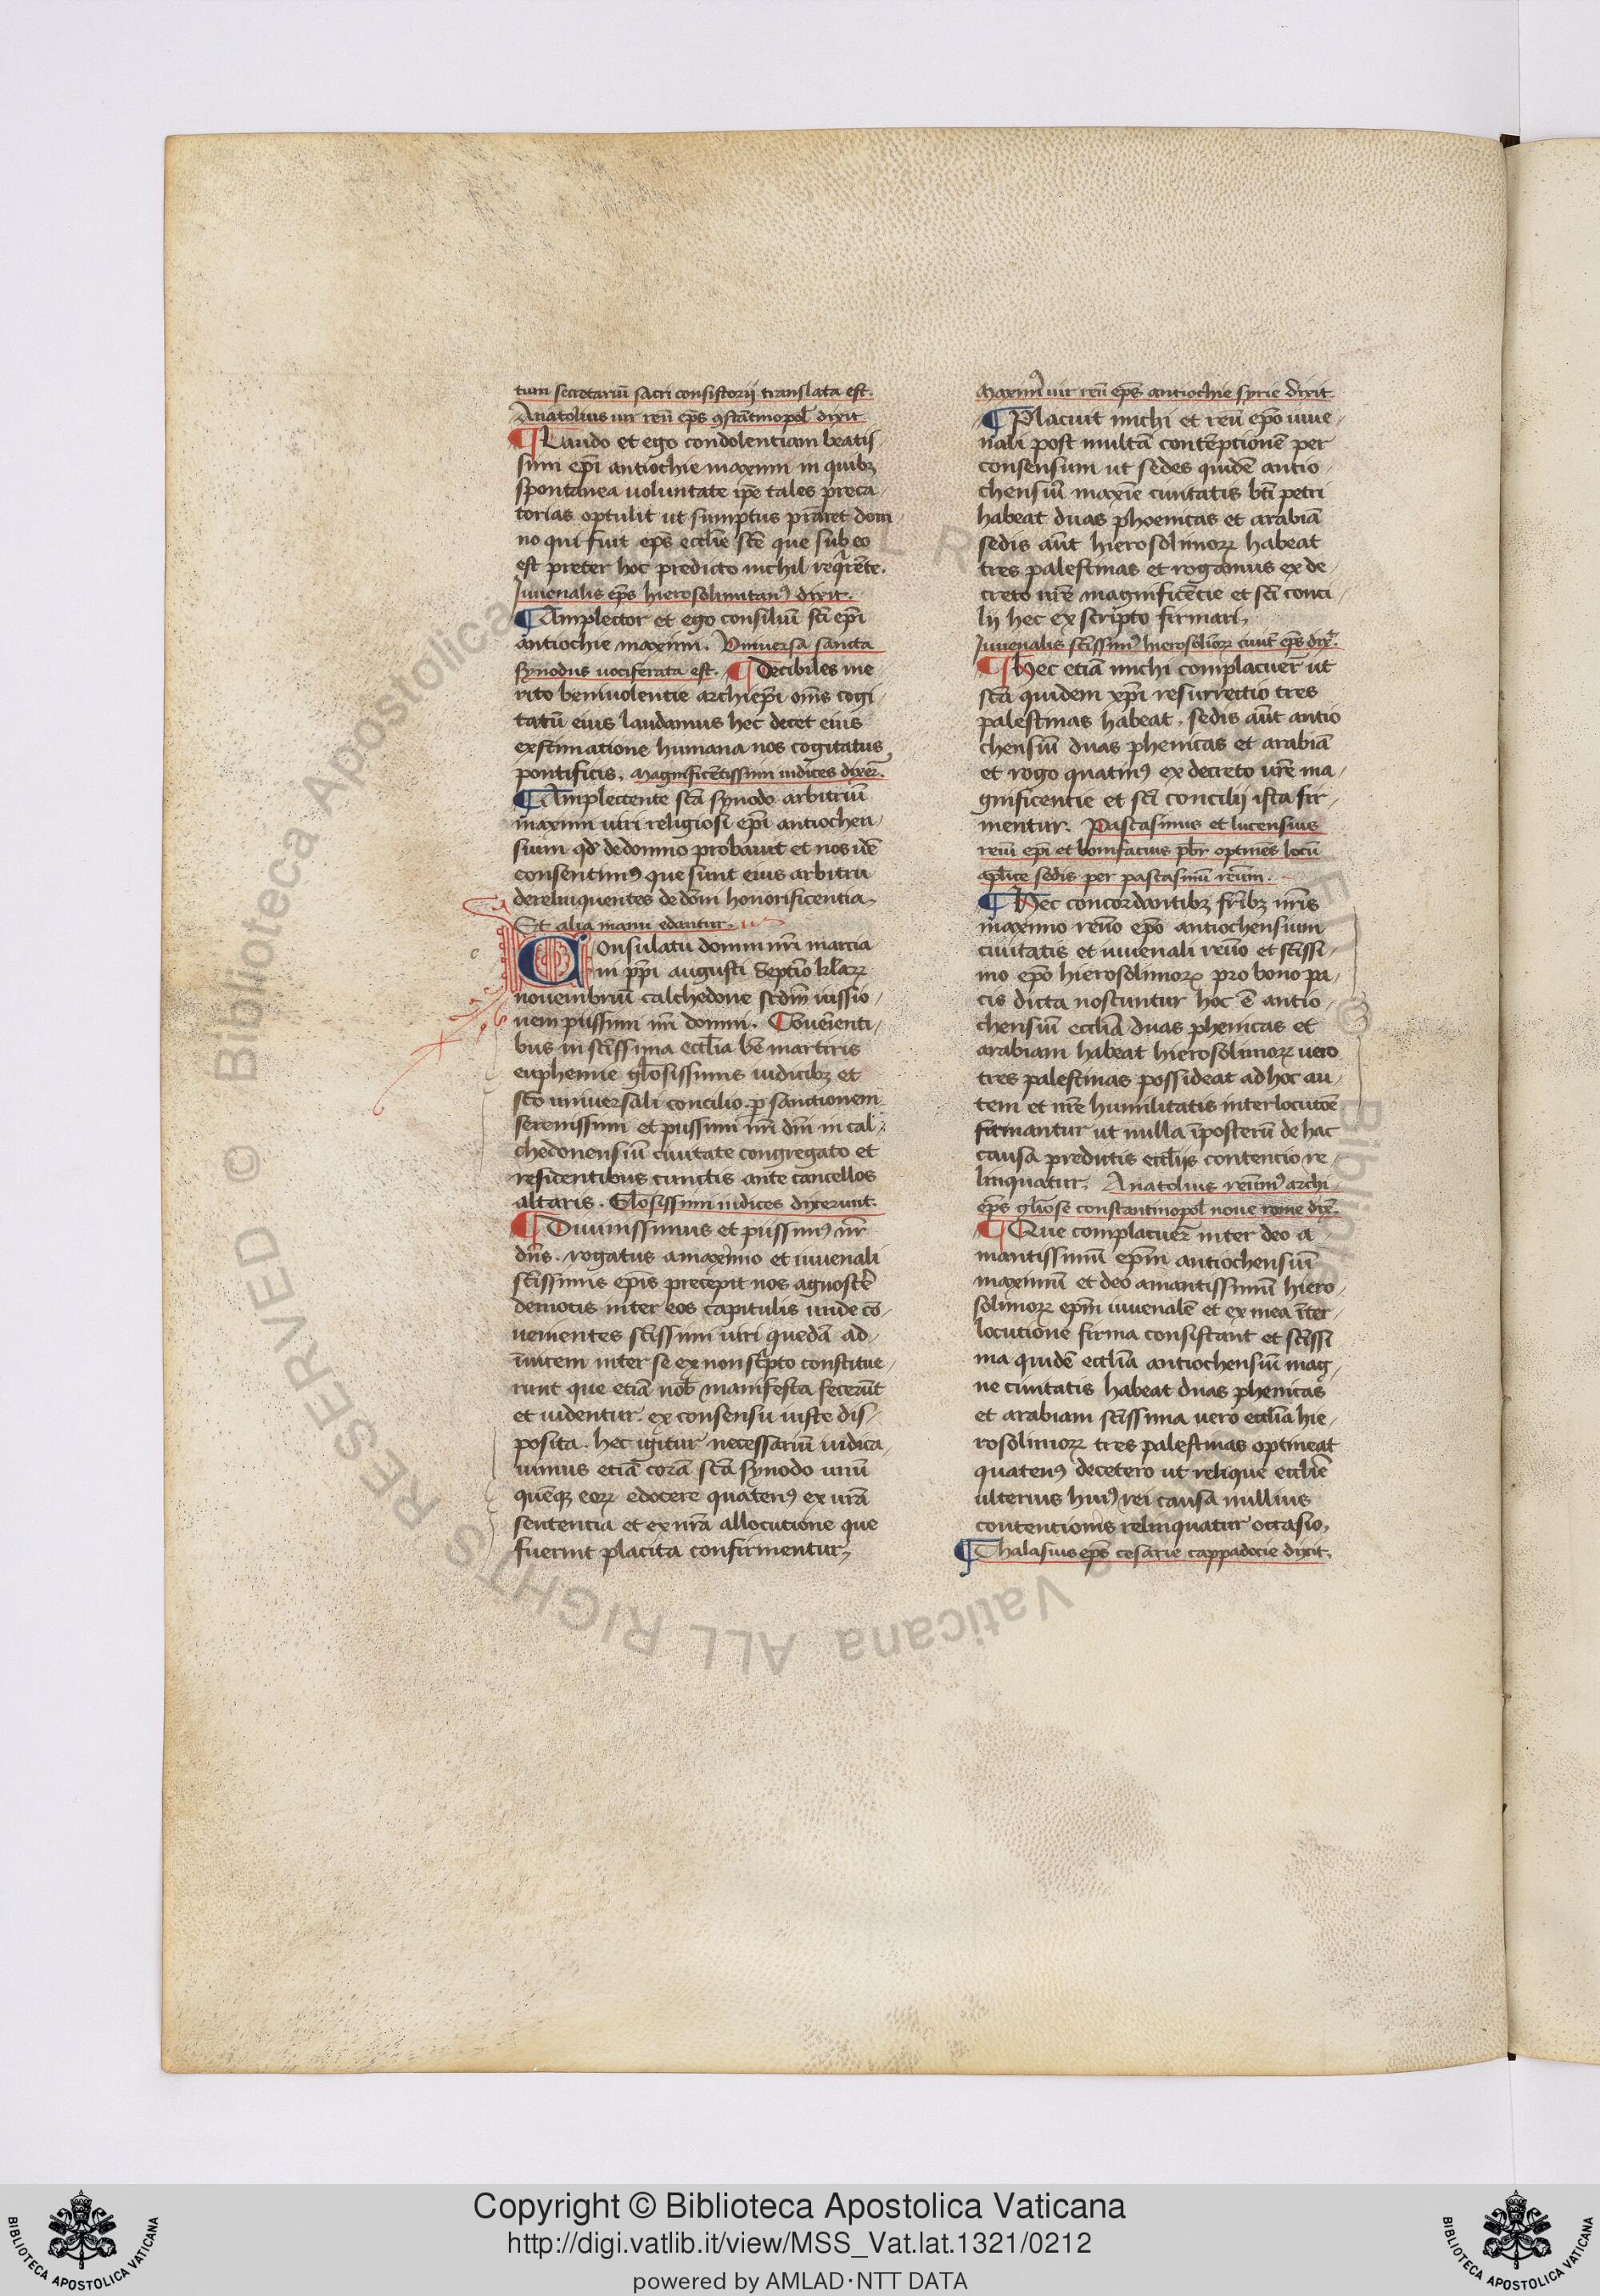 tum secretariū sacri consistorij translata est.
Anatolius vir reū ep̄s ꝯstātinopol̄ dixit
¶ Laudo et ego condolentiam beatis
simi ep̄i antiochie maximi in quibꝫ
spontanea uoluntate ip̄e tales preca
torias optulit ut sumptus p̄raret dom
no qui fuit ep̄s eccl̄ie sc̄e que sub eo
est preter hoc predicto nichil reqͥrēte.
Iuuenalis ep̄s hierosolimitanꝰ dixit.
¶ Amplector et ego consiliū sc̄i ep̄i
antiochie maximi. Vniuersa sancta
synodus uociferata est. ¶ Decibiles me
rito beniuolentie archiep̄i om̄s cogi
tatū eius laudamus hec decet eius
exstimatione humana nos cogitatus
pontificis. Magnificētissimi iudices dixer̄.
¶ Amplectente sc̄a synodo arbitriū
maximi uiri religiosi ep̄i antiochen
sium qd̄ de domno probauit et nos idē
consentimꝰ que sunt eius arbitrii
derelinquentes de dōni honorificentia.
Et alia manu edantur.
Consulatu domini nr̄i marcia
ni pp̄i augusti Septīo kl̄aꝝ
nouembriū calchedone scd̄m iussio
nem piissimi nr̄i domni. Conuenienti
bus in sc̄issima eccl̄ia bē martiris
euphemie gl̄osissimis iudicibꝫ et
sc̄o uniuersali concilio ꝑ sanctionem
serenissimi et piissimi nr̄i dn̄i in cal
chedonensiū ciuitate congregato et
residentibus cunctis ante cancellos
altaris. Gl̄osissimi iudices dixerunt.
¶ Diuinissimus et piissimꝰ nr̄
dn̄s. rogatus a maximo et iuuenali
sc̄issimis ep̄is precepit nos agnoscē
de motis inter eos capitulis unde cō
uenientes sc̄issimi uiri quedā ad
īuicem inter se ex non scͥpto constitue
runt que etiā nob̄ manifesta fecerūt
et uidentur ex consensu iuste dis
posita. hec igitur necessariū iudica
uimus etiā corā sc̄a synodo unū
quēqꝫ eoꝝ edocere quatenꝰ ex ur̄a
sentencia et ex nr̄a allocutione que
fuerint placita confirmentur,
Maximꝰ vir reū ep̄s antiochie syrie dixit
¶ Placuit michi et reū ep̄o iuue
nali post multā contēptionē per
consensum ut sedes quidē antio
chensiū maxīe ciuitatis bt̄i petri
habeat duas phoenicas et arabiā
sedis aūt hierosolimoꝝ habeat
tres palestinas et rogamus ex de
creto ur̄e magnificēcie et sc̄i conci
lij hec ex scripto firmari,
Iuuenalis sc̄issimꝰ hierosolīoꝝ ciuit̄ ep̄s dix̄.
¶ Hec etiā michi complacuer̄ ut
sc̄a quidem xp̄i resurrectio tres
palestinas habeat. sedis aūt antio
chensiū duas phenicas et arabiā
et rogo quatinꝰ ex decreto ur̄e ma
gnificentie et sc̄i concilij ista fir
mentur. Pascasinus et lucensius
reūi ep̄i et bonifacius pb̄r optinēs locū
apl̄ice sedis per pascasinū reūm.
¶ Hec concordantibꝫ fr̄ibꝫ nr̄is
maximo reūo ep̄o antiochensium
ciuitatis et iuuenali reūo et sc̄issi
mo ep̄o hierosolimoꝝ pro bono pa
cis dicta noscuntur hoc ē antio
chensiū eccl̄iā duas phenicas et
arabiam habeat hierosolimoꝝ uero
tres palestinas possideat ad hoc au
tem et nr̄e humilitatis interlocutōe
firmantur ut nulla īposterū de hac
causa predictis eccl̄ijs contencio re
linquatur. Anatolius reūmꝰ archi
ep̄s gl̄iose constantinopol̄ noue rome dix̄.
¶ Que complacuer̄ inter deo a
mantissimū ep̄m antiochensiū
maximū et deo amantissimū hiero
solimoꝝ ep̄m iuuenalē et ex mea īter
locutione firma consistant et sc̄issi
ma quidē eccl̄ia antiochensiū mag
ne ciuitatis habeat duas phenicas
et arabiam sc̄issima uero eccl̄ia hie
rosolimoꝝ tres palestinas optineat
quatenꝰ decetero ut relique eccl̄ie
ulterius huiꝰ rei causa nullius
contentionis relinquatur occasio,
¶ Thalasius ep̄s cesarie cappadocie dixit.
© Biblioteca Apostolica Vaticana ALL RIGHTS RESERVED
Copyright © Biblioteca Apostolica Vaticana
http://digi.vatlib.it/view/MSS_Vat.lat.1321/0212
powered by AMLAD·NTT DATA
BIBLIOTECA APOSTOLICA VATICANA
BIBLIOTECA APOSTOLICA VATICANA